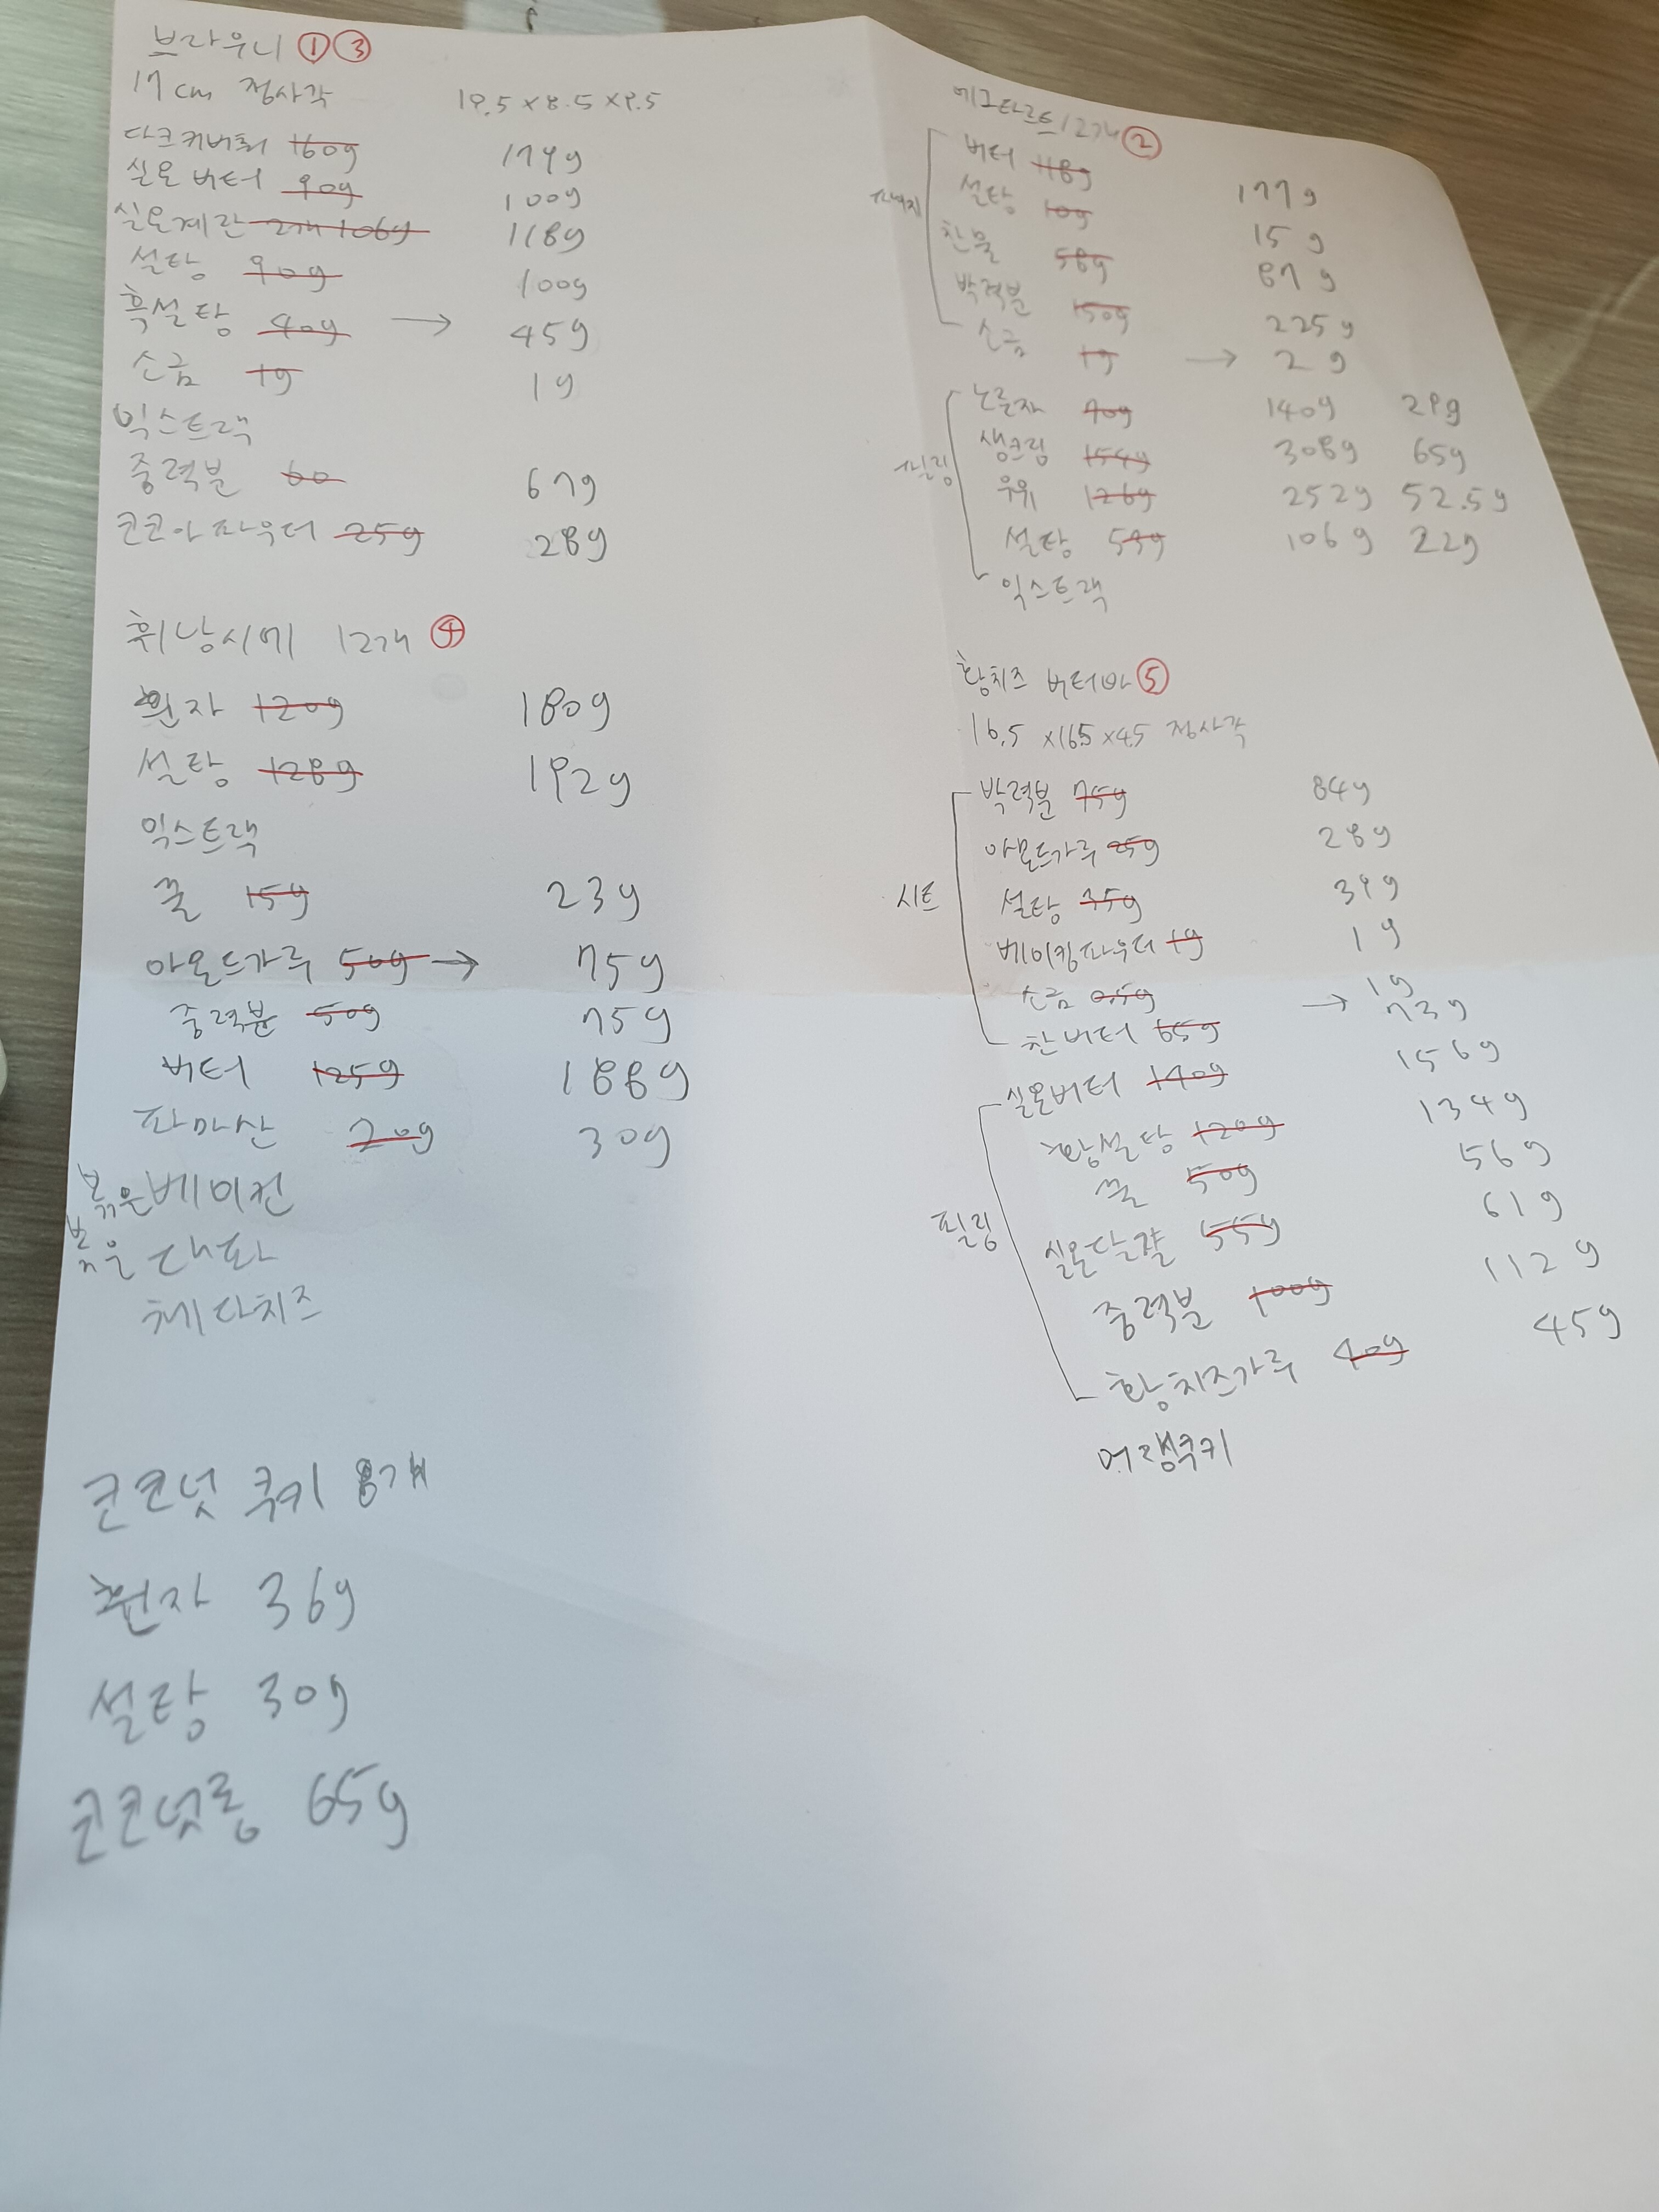 브라우니 ① ③
17cm 정사각 19.5×8.5×9.5
다크커버춰 160g 179g
실온버터 90g 100g
실온계란 2개 106g 118g
설탕 90g 100g
흑설탕 40g → 45g
소금 1g 1g
익스트랙
중력분 60 67g
코코아파우더 25g 28g
휘낭시에 12개 ④
흰자 120g 180g
설탕 128g 192g
익스트랙
꿀 15g 23g
아몬드가루 50g → 75g
중력분 50g 75g
버터 125g 188g
파마산 20g 30g
볶은베이컨
볶은대파
체다치즈
코코넛 쿠키 8개
흰자 36g
설탕 30g
코코넛롱 65g
에그타르트 12개 ②
버터 118g 177g
설탕 10g 15g
찬물 58g 87g
박력분 150g 225g
소금 1g → 2g
필링
노른자 70g 140g 29g
생크림 154g 308g 65g
우유 126g 252g 52.5g
설탕 53g 106g 22g
익스트랙
황치즈 버터바 ⑤
16.5×16.5×4.5 정사각
시트
박력분 75g 84g
아몬드가루 25g 28g
설탕 35g 39g
베이킹파우더 1g 1g
소금 0.5g 1g
찬버터 65g → 73g
필링
실온버터 140g 156g
황설탕 120g 134g
꿀 50g 56g
실온달걀 55g 61g
중력분 100g 112g
황치즈가루 40g 45g